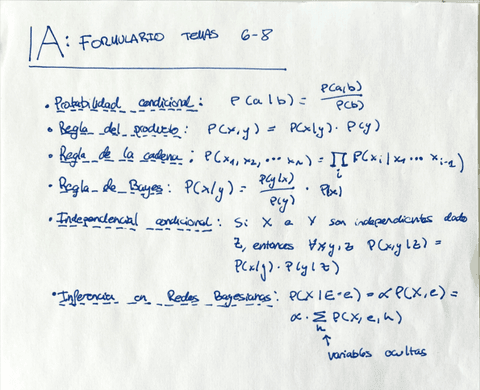 IA: FORMULARIO TEMAS 6-8
• Probabilidad condicional: P(a|b) = P(a,b) / P(b)
• Regla del producto: P(x,y) = P(x|y) · P(y)
• Regla de la cadena: P(x1, x2, ... xn) = ∏i P(xi | x1 ... xi-1)
• Regla de Bayes: P(x|y) = P(y|x) / P(y) · P(x)
• Independencial condicional: Si X e Y son independientes dado
Z, entonces ∀x,y,z P(x,y|z) =
P(x|y) · P(y|z)
• Inferencia en Redes Bayesianas: P(X|E=e) = αP(X,e) =
α · ∑h P(X, e, h)
↑
variables ocultas